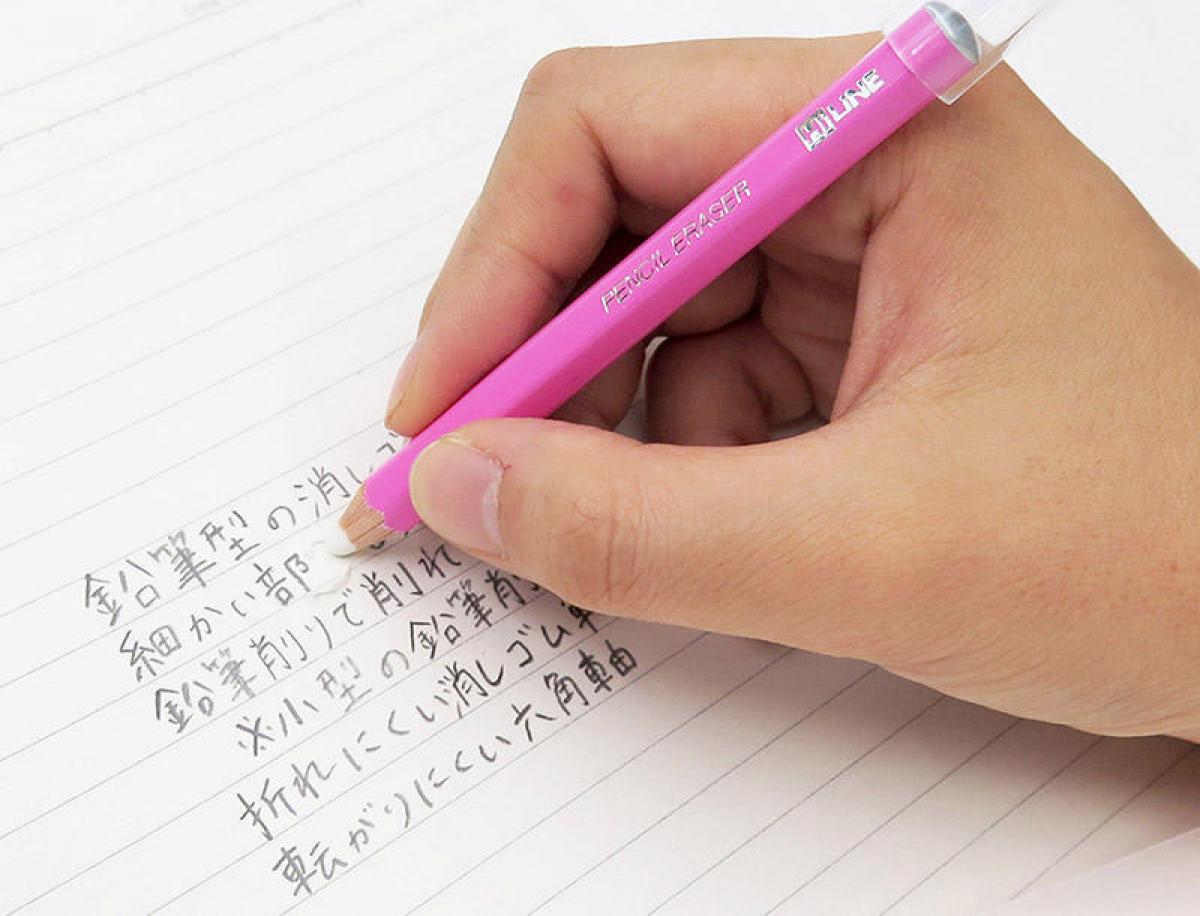 LINE
PENCIL ERASER
鉛筆型の消し
細かい部
鉛筆削りで削れ
※小型の鉛筆削
折れにくい消しゴム
転がりにくい六角軸